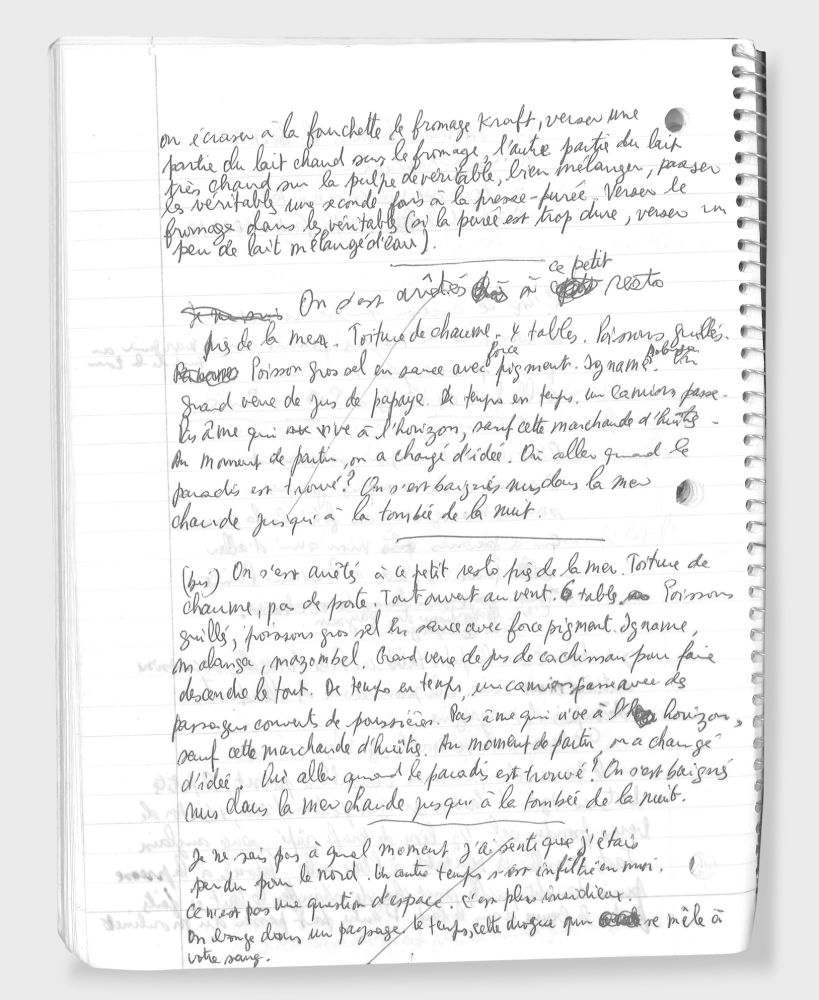 on écraser à la fourchette le fromage Kraft, verser une
partie du lait chaud sur le fromage, l'autre partie du lait
très chaud sur la pulpe de véritable, bien mélanger, passer
les véritables une seconde fois à la presse-purée. Verser le
fromage dans les véritables (si la purée est trop dure, verser un
peu de lait mélangé d'eau).
ce petit
On s'est arrêtés à resto
près de la mer. Toiture de chaume. 4 tables. Poissons grillés.
Poisson gros sel en sauce avec force pigment. Igname. Un
grand verre de jus de papaye. De temps en temps, un camion passe.
Pas âme qui vive à l'horizon, sauf cette marchande d'huîtres.
Au moment de partir, on a changé d'idée. Où aller quand le
paradis est trouvé? On s'est baignés nus dans la mer
chaude jusqu'à la tombée de la nuit.
(bis) On s'est arrêtés à ce petit resto près de la mer. Toiture de
chaume, pas de porte. Tout ouvert au vent. 6 tables. Poissons
grillés, poissons gros sel en sauce avec force pigment. Igname,
malanga, mazombel. Grand verre de jus de cachiman pour faire
descendre le tout. De temps en temps, un camion passe avec des
passagers couverts de poussières. Pas âme qui vive à l'horizon,
sauf cette marchande d'huîtres. Au moment de partir, on a changé
d'idée. Où aller quand le paradis est trouvé? On s'est baignés
nus dans la mer chaude jusqu'à la tombée de la nuit.
Je ne sais pas à quel moment j'ai senti que j'étais
perdu pour le nord. Un autre temps s'est infiltré en moi.
Ce n'est pas une question d'espace. C'est plus insidieux.
On bouge dans un paysage. Le temps, cette drogue qui se mêle à
votre sang.